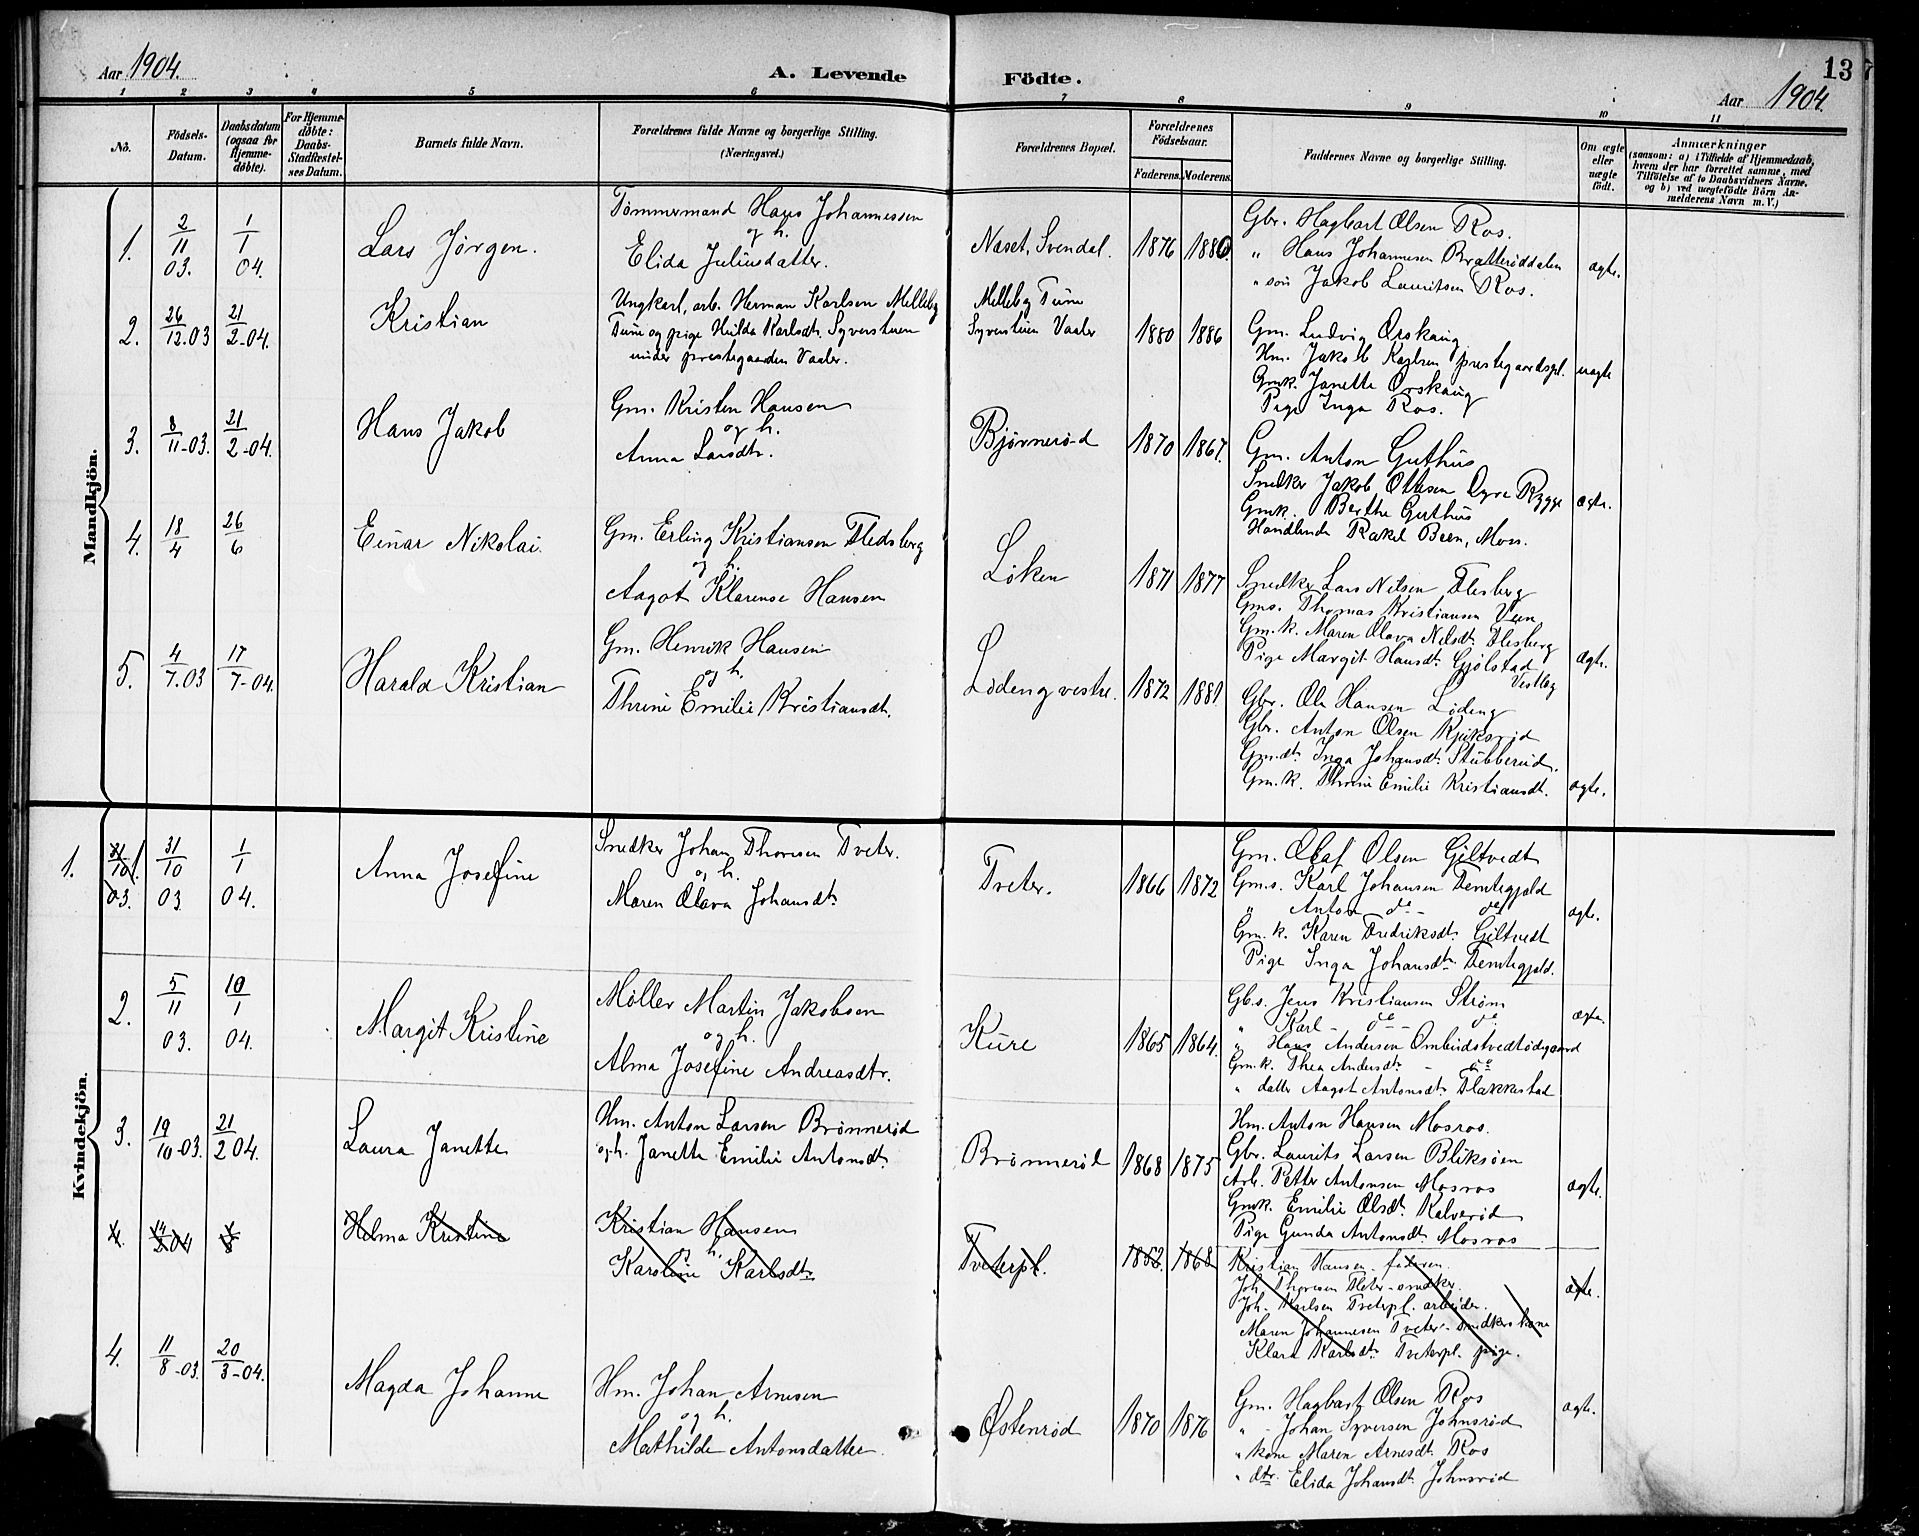 Aar 1904.
A. Levende
Födte.
13
Aar 1904.
1 2 3 4 5 6 7 8 9 10 11
No.
Födsels-
Datum.
Daabsdatum
(ogsaa for
Hjemme-
døbte).
For Hjemme-
døbte:
Daabs-
Stadfæstel-
ses Datum.
Barnets fulde Navn.
Forældrenes fulde Navne og borgerlige Stilling.
(Næringsvei.)
Forældrenes Bopæl.
Forældrenes
Födselsaar.
Faderens. Moderens.
Faddernes Navne og borgerlige Stilling.
Om ægte
eller
uægte
födt.
Anmærkninger
(saasom: a) i Tilfælde af Hjemmedaab,
hvem der har forrettet samme, med
Tilföielse af to Daabsvidners Navne,
og b) ved uægtefödte Börn An-
melderens Navn m. V.)
Mandkjön.
1.
2/11 03.
1/1 04.
Lars Jørgen.
Tømmermand Hans Johannessen
og h.
Elida Juliusdatter.
Næset, Svendal.
1876
1880.
Gbr. Hagbart Olsen Ros.
" Hans Johannesen Bratterøddalen
" søn Jakob Lauritsen Ros.
ægte.
2.
26/12-03
21/2-04.
Kristian
Ungkarl, arb. Herman Karlsen Melleby
Tune og pige Hulda Karlsdt. Syverstuen
under prestegaarden Vaaler.
Melleby Tune
Syverstuen Vaaler
1880
1886
Gm. Ludvig Orskaug
Hm. Jakob Karlsen prestegaardspl.
Gmk. Janette Orskaug
Pige Inga Ros.
uægte
3.
8/11-03.
21/2-04.
Hans Jakob
Gm. Kristen Hansen
og h.
Anna Larsdtr.
Bjørnerød
1870
1867.
Gm. Anton Guthus
Snedker Jakob Ottesen Øyre Rygge
Gmk. Berthe Guthus
Handlende Rakel Been, Moss.
ægte.
4.
18/4
26/6
Einar Nikolai.
Gm. Erling Kristiansen Fledsberg
og h.
Aagot Klarense Hansen
Løken
1871
1877
Snedker Lars Nilsen Flesberg
Gms. Thomas Kristiansen Veen
Gm.k. Maren Olava Nilsdt. Flesberg
Pige Margit Hansdt. Gjølstad
Vestby
ægte.
5.
4/7.03
17/7-04.
Harald Kristian
Gm. Henrik Hansen
og h.
Thrine Emilie Kristiansdt.
Lødeng vestre.
1872
1881.
Gbr. Ole Hansen Lødeng
Gbr. Anton Olsen Kjiksrød
Gm.dt. Inga Johansdt. Stubberud.
Gm.k. Thrine Emilie Kristiansdt.
ægte.
Kvindekjön.
1.
31/10 03.
31/10 03
1/1 04.
Anna Josefine
Snedker Johan Thoresen Tveter.
og h.
Maren Olava Johansdt.
Tveter.
1866
1872
Gm. Olaf Olsen Giltvedt
Gm.s. Karl Johansen Femtegjeld
" Anton do - do
Gm.k. Karen Fredriksdt. Giltvedt
Pige Inga Johansdt. Femtegjeld.
ægte.
2.
5/11 03.
10/1 04.
Margit Kristine
Møller Martin Jakobsen
og h.
Alma Josefine Andreasdtr.
Kure
1865
1864.
Gb.s. Jens Kristiansen Strøm
" Karl - do - do
" Hans Andersen Ombudstvedtødegaard
Gm.k. Thea Andersdt. - do
" datter Aagot Antonsdt. Flakkestad
ægte.
3.
19/10-03.
21/2 04.
Laura Janette
Hm. Anton Larsen Brønnerød
og h. Janette Emilie Antonsdt.
Brønnerød
1868
1875
Hm. Anton Hansen Mosros.
Gbr. Laurits Larsen Bliksøen
Arb. Petter Antonsen Mosros
Gmk. Emilie Olsdt. Kalverød
Pige Gunda Antonsdt. Mosros
ægte.
4.
Helma Kristine
Kristian Hansen
og h.
Karoline Karlsdt.
Tveterpl.
1868
Kristian Hansen - faderen.
Joh. Thoresen Tveter - snedker.
Joh. Karlsen Tveterpl. arbeider.
Maren Johannesen Tveter - snedkers kone
Klara Karlsdt. Tveterpl. pige.
ægte.
4.
11/8-03.
20/3-04.
Magda Johanne
Hm. Johan Arnesen
og h.
Mathilde Antonsdatter.
Østenrød
1870
1876
Gm. Hagbart Olsen Ros
" - Johan Syversen Johnsrød
" kone Maren Arnesdt. Ros
" dtr. Elida Johansdt. Johnsrød
ægte.